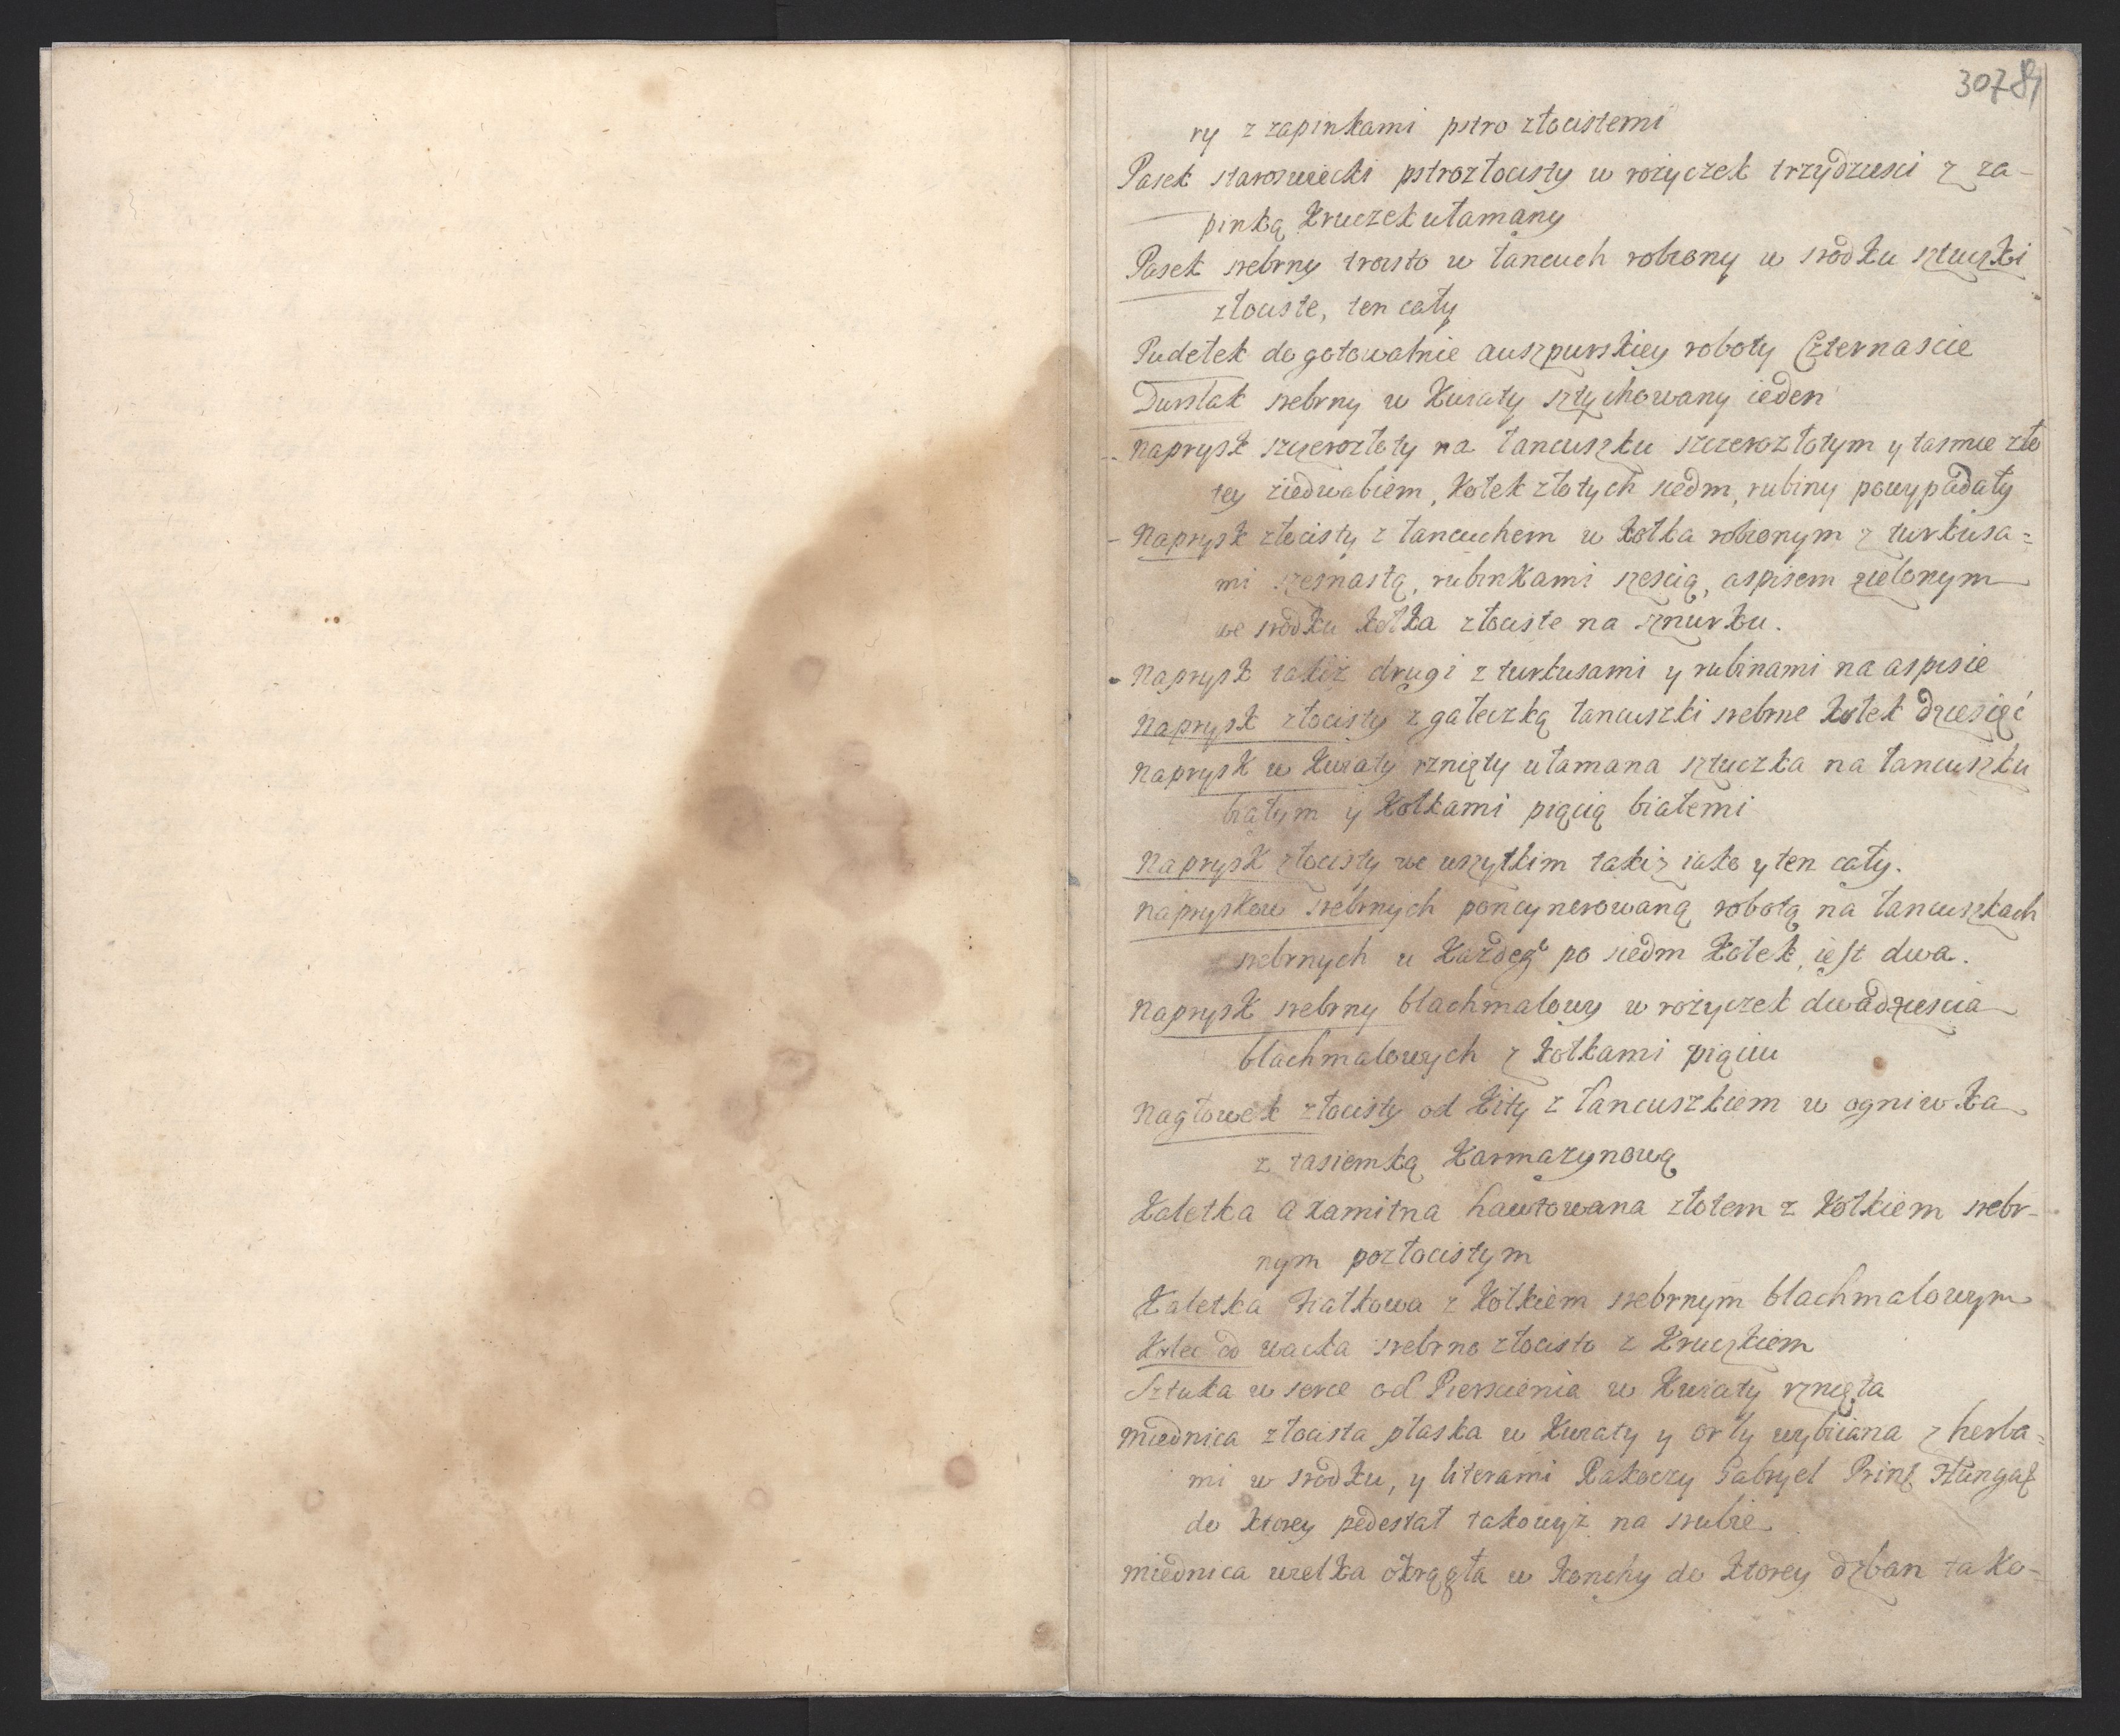 30781
ry z zapinkami pstro złocistemi
Pasek staroswiecki pstrozłocisty w rozyczek trzydziesci z za-
pinką kruczek ułamany
Pasek srebrny troisto w łancuch robiony w srodku sztuczki
złociste, ten cały
Pudełek do gotowalnie auszpurskiey roboty Czternascie
Durslak srebrny w Kwiaty sztychowany ieden
Naprysk szczerozłoty na łancuszku szczerozłotym y tasmie zło
tey ziedwabiem, kołek złotych siedm, rubiny powypadały
Naprysk złocisty z łancuchem w kołka robionym z turkusa=
mi szesnastą, rubinkami szescią, aspisem zielonym
we srodku kołka złociste na sznurku.
Naprysk takiż drugi z turkusami y rubinami na aspisie
Naprysk złocisty z gałeczką łancuszki srebrne kołek dziesięć
Naprysk w Kwiaty rznięty ułamana sztuczka na łancuszku
białym y Kołkami piącią białemi
Naprysk złocisty we wszytkim takiz iako y ten cały.
Naprysków srebrnych poncynerowaną robotą na łancuszkach
srebrnych u Kazdego po siedm kołek, iest dwa.
Naprysk srebrny blachmalowy w rożyczek dwadziescia
blachmalowych z kołkami piąciu
Nagłowek złocisty od kity z łancuszkiem w ogniwka
z tasiemką Karmazynową
Kaletka axamitna hawtowana złotem z kołkiem srebr-
nym pozłocistym
Kaletka Fiałkowa z kołkiem srebrnym blachmalowym
Kolec od wacka srebrno złocisto z kruczkiem
Sztuka w serce od Piersienia w Kwiaty rznięta
Miednica złocista płaska w Kwiaty y orły wybiiana z herba=
mi w srodku, y literami Rakoczy Gabryel Prins Hungar
do ktorey pedestał takowyż na srubie
Miednica wielka okrągła w konchy do ktorey dzban tako-